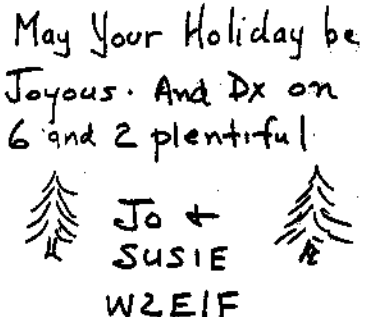 May Your Holiday be
Joyous. And Dx on
6 and 2 plentiful
Jo +
SUSIE
W2E1F